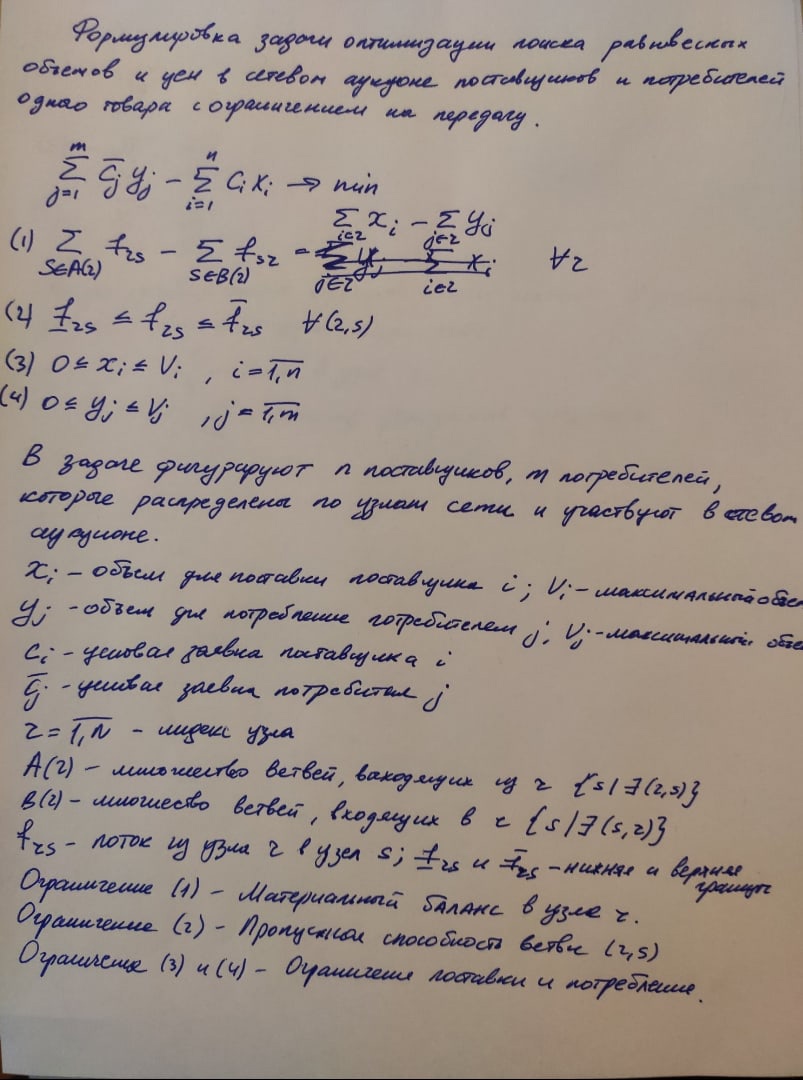 Формулировка задачи оптимизации поиска равновесных
объемов и цен в сетевом аукционе поставщиков и потребителей
одного товара с ограничением на передачу.
∑_{j=1}^{m} c̄_j y_j − ∑_{i=1}^{n} c_i x_i → min
(1) ∑_{s∈A(r)} f_{rs} − ∑_{s∈B(r)} f_{sr} = ∑_{i∈r} x_i − ∑_{j∈r} y_j ∀r
(2) f̲_{rs} ≤ f_{rs} ≤ f̄_{rs} ∀(r,s)
(3) 0 ≤ x_i ≤ V_i , i = 1,n
(4) 0 ≤ y_j ≤ V_j , j = 1,m
В задаче фигурируют n поставщиков, m потребителей,
которые распределены по узлам сети и участвуют в сетевом
аукционе.
x_i – объем для поставки поставщика i; V_i – максимальный объем
y_j – объем для потребление потребителем j, V_j – максимальный объем
c_i – ценовая заявка поставщика i
c̄_j – ценовая заявка потребителя j
r = 1,N – индекс узла
A(r) – множество ветвей, выходящих из r {s | ∃(r,s)}
B(r) – множество ветвей, входящих в r {s | ∃(s,r)}
f_{rs} – поток из узла r в узел s; f̲_{rs} и f̄_{rs} – нижняя и верхняя
границы
Ограничение (1) – Материальный баланс в узле r.
Ограничение (2) – Пропускная способность ветви (r,s)
Ограничение (3) и (4) – Ограничение поставки и потребление.